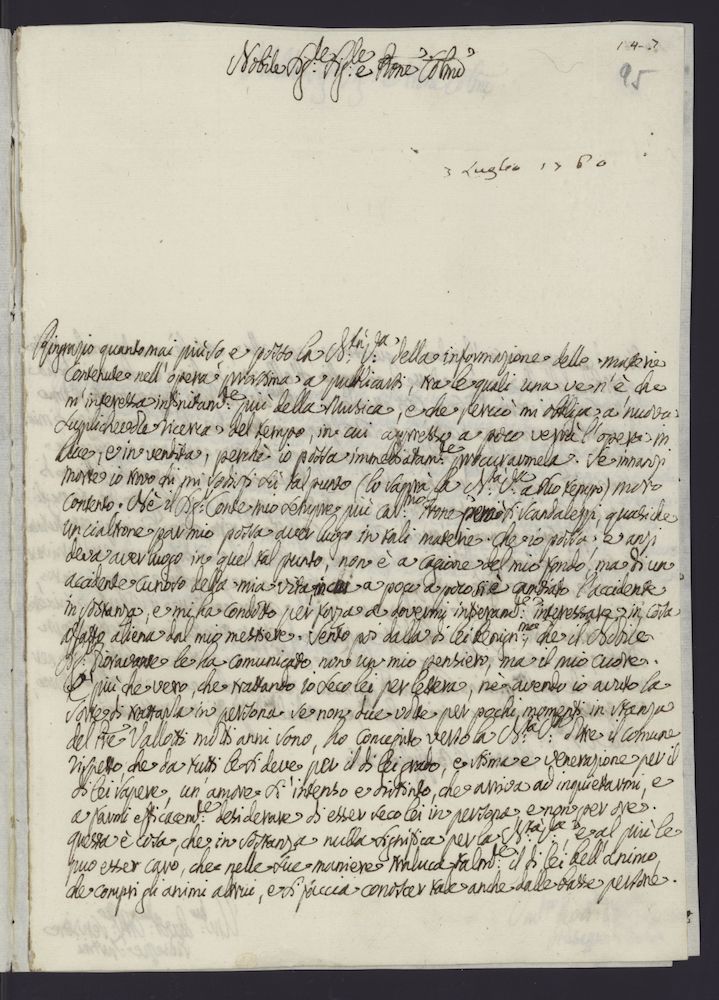 147
95
Nobile Sig.r Sig.r e Prone Colmo
3 Luglio 1760
Ringrazio quanto mai più so e posso la N.tra S.ria della informazione delle materie
contenute nell'opera prossima a publicarsi, tra le quali una ve n'è che
m'interessa infinitam.te più della Musica, e che perciò mi obbliga a nuova
ricerca del tempo, in cui appresso a poco verrà l'opera in
luce, e in vendita, perchè io possa immediatam.te procurarmela. Se innanzi
morte io trovo chi mi sodisfi sù tal punto (lo saprà la N.tra S.ria a suo tempo) moro
contento. Nè il Sig.r Conte mio sempre più Padrone si scandalezzi, quasi che
un cialtrone par mio possa aver luogo in tali materie. che io possa, e anzi
deva aver luogo in quel tal punto, non è a cagione del mio fondo, ma di un
accidente curioso della mia vita, in cui a poco a poco si è cambiato l'accidente
in sostanza, e mi ha condotto per forza a dovermi interam.te interessare in cosa
affatto aliena dal mio mestiere. Sento poi dalla di lei benign.ma, che il Nobile
Sig.r Fioravante le ha comunicato non un mio pensiero, ma il mio cuore.
È più che vero, che trattando io seco lei per lettera, nè avendo io avuto la
sorte di trattarla in persona se non due volte per pochi momenti in stanza
del Pre Vallotti molti anni sono, ho conceputo verso la N.tra S.ria oltre il comune
rispetto, che da tutti le si deve per il di lei grado, e stima e venerazione per il
di lei sapere, un amore sì intenso e distinto, che arriva ad inquietarmi, e
a farmi efficacem.te desiderare di esser seco lei in persona, e non per ore.
questa è cosa, che in sostanza nulla significa per la N.tra S.ria e al più le
può esser caro, che nelle sue maniere traluca talm.te il di lei bell'Animo,
che compri gli animi altrui, e si faccia conoscer tale anche dalle basse persone.